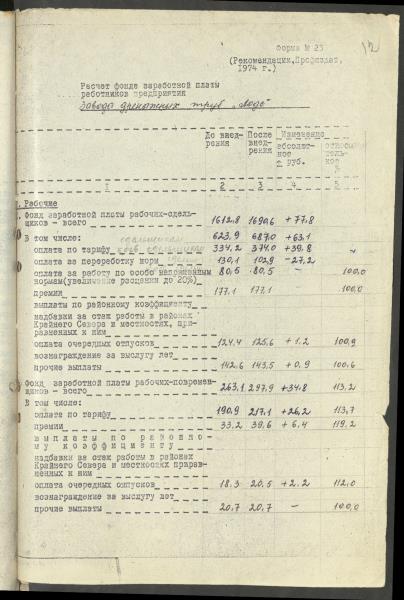 Форма № 23
12
(Рекомендации, Профиздат,
1974 г.)
Расчет фонда заработной платы
работников предприятия
Завода дренажных труб
До внедрения После внедрения Изменение
абсолютное ± руб. относительное %
1 2 3 4 5
I. Рабочие
Фонд заработной платы рабочих-сдельщиков - всего 1612,8 1690,6 +77,8
В том числе: 623,9 687,0 +63,1
оплата по тарифу 334,2 374,0 +39,8
оплата за переработку норм 130,1 102,9 -27,2
оплата за работу по особо напряженным
нормам (увеличение расценки до 20%) 80,5 80,5 - 100,0
премии 177,1 177,1 - 100,0
выплаты по районному коэффициенту
надбавки за стаж работы в районах
Крайнего Севера и местностях, приравненных к ним
оплата очередных отпусков 124,4 125,6 +1,2 100,9
вознаграждение за выслугу лет
прочие выплаты 142,6 143,5 +0,9 100,6
Фонд заработной платы рабочих-повременщиков - всего 263,1 297,9 +34,8 113,2
В том числе:
оплата по тарифу 190,9 217,1 +26,2 113,7
премии 33,2 39,6 +6,4 119,2
выплаты по районному коэффициенту
надбавки за стаж работы в районах
Крайнего Севера и местностях приравненных к ним
оплата очередных отпусков 18,3 20,5 +2,2 112,0
вознаграждение за выслугу лет
прочие выплаты 20,7 20,7 - 100,0